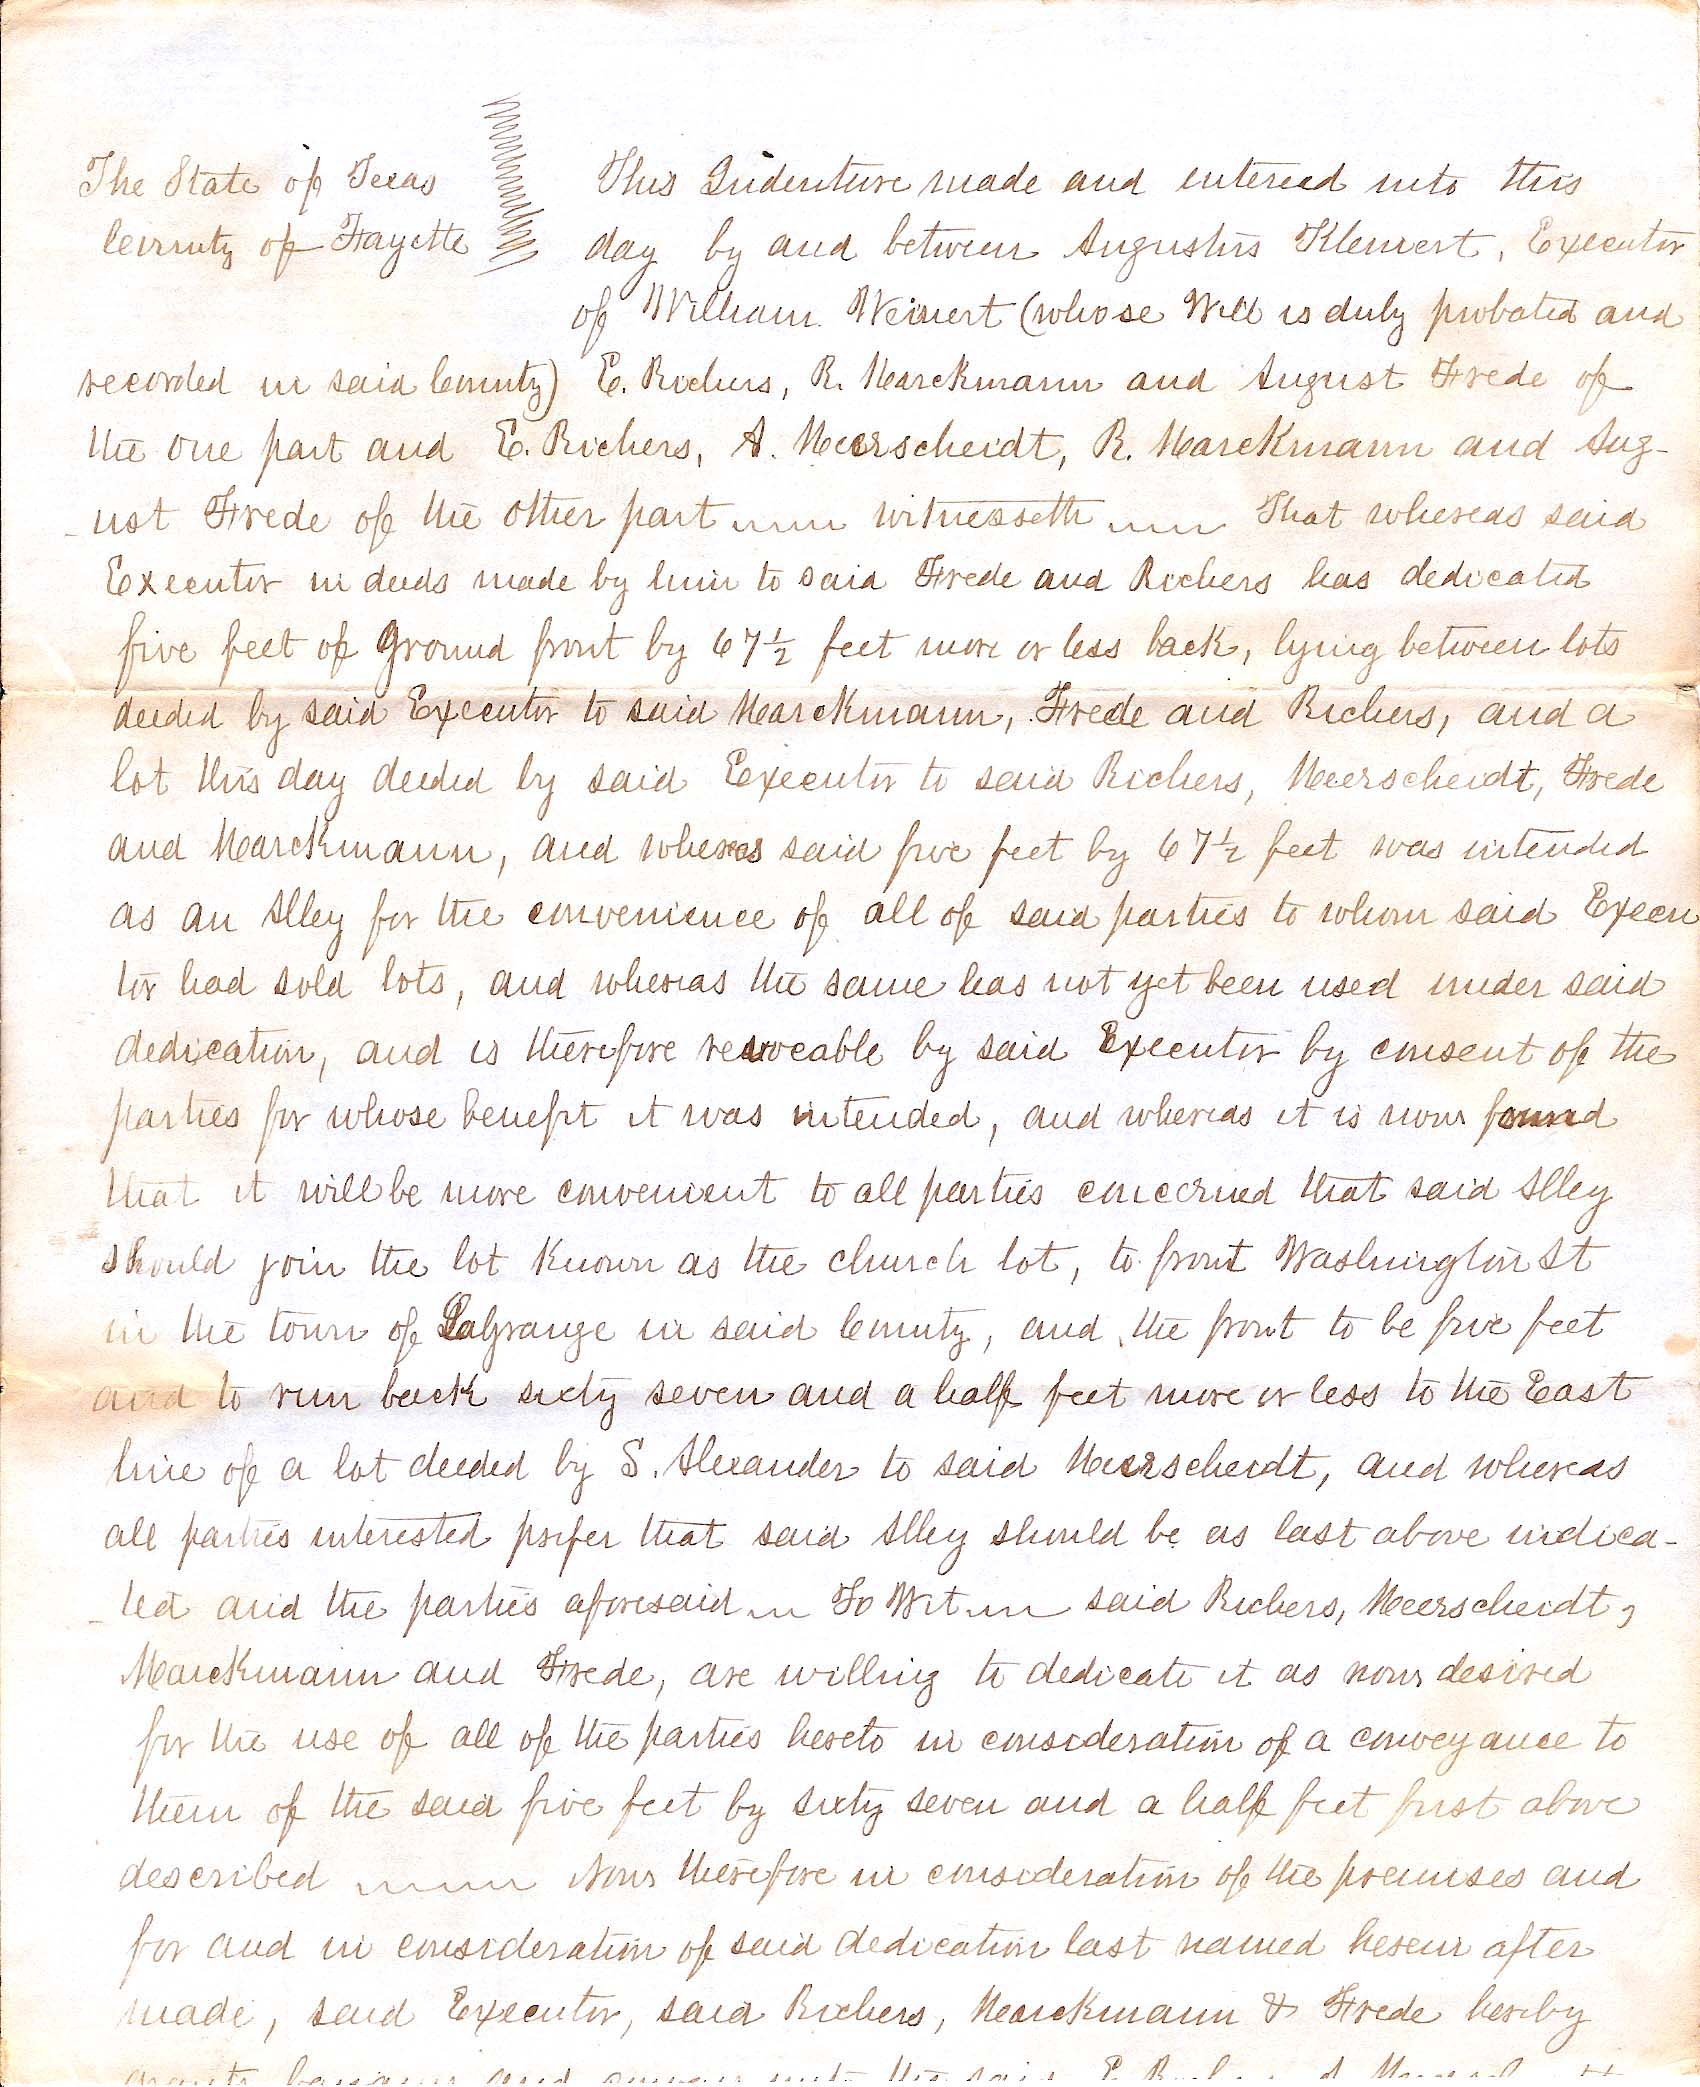 The State of Texas
County of Fayette
This Indenture made and entered into this
day by and between Augustus Klemert, Executor
of William Weinert (whose Will is duly probated and
recorded in said County) E. Richers, R. Marckmann and August Frede of
the one part and E. Richers, A. Meerscheidt, R. Marckmann and Aug-
ust Frede of the other part witnesseth That whereas said
Executor in deeds made by him to said Frede and Richers has dedicated
five feet of Ground front by 67½ feet more or less back, lying between lots
deeded by said Executor to said Marckmann, Frede and Richers, and a
lot this day deeded by said Executor to said Richers, Meerscheidt, Frede
and Marckmann, and whereas said five feet by 67½ feet was intended
as an Alley for the convenience of all of said parties to whom said Execu
tor had sold lots, and whereas the same has not yet been used under said
dedication, and is therefore revoceable by said Executor by consent of the
parties for whose benefit it was intended, and whereas it is now found
that it will be more convenient to all parties concerned that said Alley
should join the lot known as the church lot, to front Washington St
in the town of LaGrange in said County, and the front to be five feet
and to run back sixty seven and a half feet more or less to the East
line of a lot deeded by S. Alexander to said Meerscheidt, and whereas
all parties interested prefer that said Alley should be as last above indica-
ted and the parties aforesaid To Wit said Richers, Meerscheidt,
Marckmann and Frede, are willing to dedicate it as now desired
for the use of all of the parties hereto in consideration of a conveyance to
them of the said five feet by sixty seven and a half feet first above
described Now therefore in consideration of the premises and
for and in consideration of said dedication last named herein after
made, said Executor, said Richers, Marckmann & Frede hereby